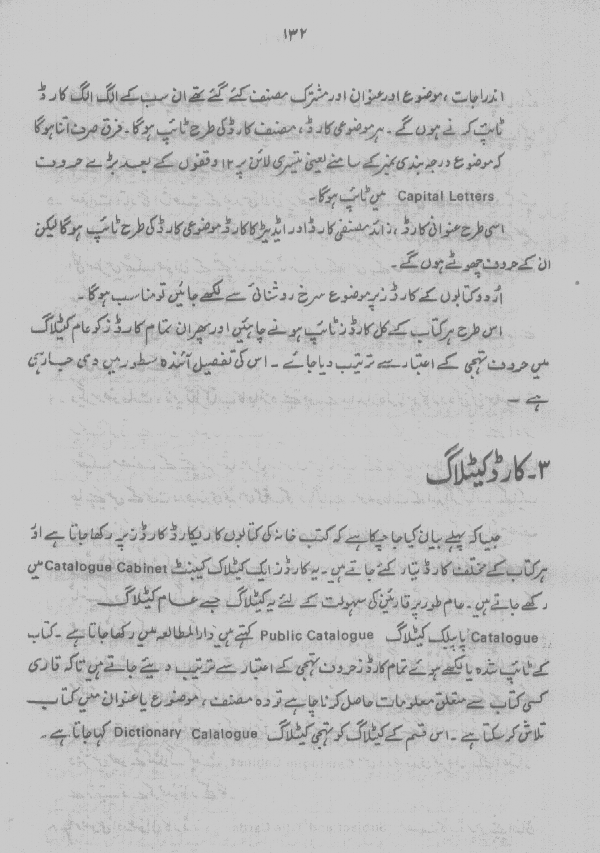 ۱۳۲
اندراجات ، موضوع اور عنوان اور مشترک مصنف کئے گئے تھے ان سب کے الگ الگ کارڈ
ٹائپ کرنے ہوں گے ۔ ہر موضوعی کارڈ ، مصنف کارڈ کی طرح ٹائپ ہوگا ۔ فرق صرف اتنا ہوگا
کہ موضوع درجہ بندی نمبر کے سامنے یعنی تیسری لائن پر ۱۲ وقفوں کے بعد بڑے حروف
Capital Letters میں ٹائپ ہوگا ۔
اسی طرح عنوانی کارڈ ، زائد مصنفی کارڈ اور ایڈیٹر کا کارڈ موضوعی کارڈ کی طرح ٹائپ ہوگا لیکن
ان کے حروف چھوٹے ہوں گے ۔
اُردو کتابوں کے کارڈز پر موضوع سرخ روشنائی سے لکھے جائیں تو مناسب ہوگا ۔
اس طرح ہر کتاب کے کل کارڈز ٹائپ ہونے چاہئیں اور پھر ان تمام کارڈز کو عام کیٹلاگ
میں حروف تہجی کے اعتبار سے ترتیب دیا جائے ۔ اس کی تفصیل آئندہ سطور میں دی جا رہی
ہے ۔
۳۔ کارڈ کیٹلاگ
جیسا کہ پہلے بیان کیا جا چکا ہے کہ کتب خانہ کی کتابوں کا ریکارڈ کارڈز پر رکھا جاتا ہے اور
ہر کتاب کے مختلف کارڈ تیار کئے جاتے ہیں ۔ یہ کارڈز ایک کیٹلاگ کیبنٹ Catalogue Cabinet میں
رکھے جاتے ہیں ۔ عام طور پر قارئین کی سہولت کے لئے یہ کیٹلاگ جسے عام کیٹلاگ
Catalogue یا پبلک کیٹلاگ Public Catalogue کہتے ہیں دارالمطالعہ میں رکھا جاتا ہے ۔ کتاب
کے ٹائپ شدہ یا لکھے ہوئے تمام کارڈز حروف تہجی کے اعتبار سے ترتیب دیئے جاتے ہیں تاکہ قاری
کسی کتاب سے متعلق معلومات حاصل کرنا چاہے تو وہ مصنف ، موضوع یا عنوان میں کتاب
تلاش کر سکتا ہے ۔ اس قسم کے کیٹلاگ کو تہجی کیٹلاگ Dictionary Calalogue کہا جاتا ہے ۔